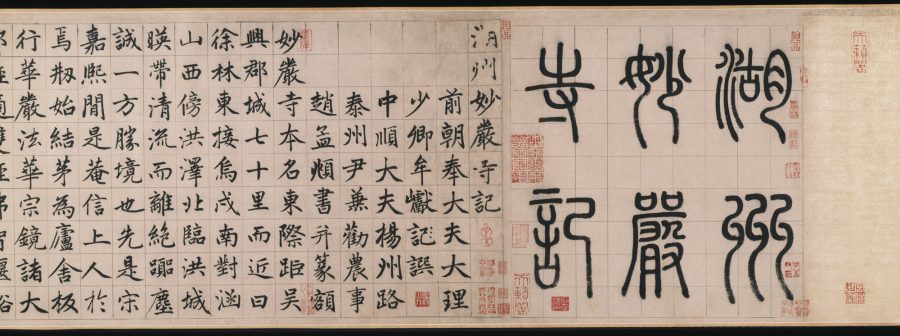 湖州
妙嚴
寺記
湖州妙嚴寺記
前朝奉大夫大理
少卿牟巘記譔
中順大夫楊州路
泰州尹兼勸農事
趙孟頫書并篆額
妙嚴寺本名東際距吳
興郡城七十里而近曰
徐林東接烏戍南對涵
山西傍洪澤北臨洪城
暎帶清流而離絶囂塵
誠一方勝境也先是宋
嘉熙間是菴信上人於
焉刱始結茅為廬舍板
行華嚴法華宗鏡諸大